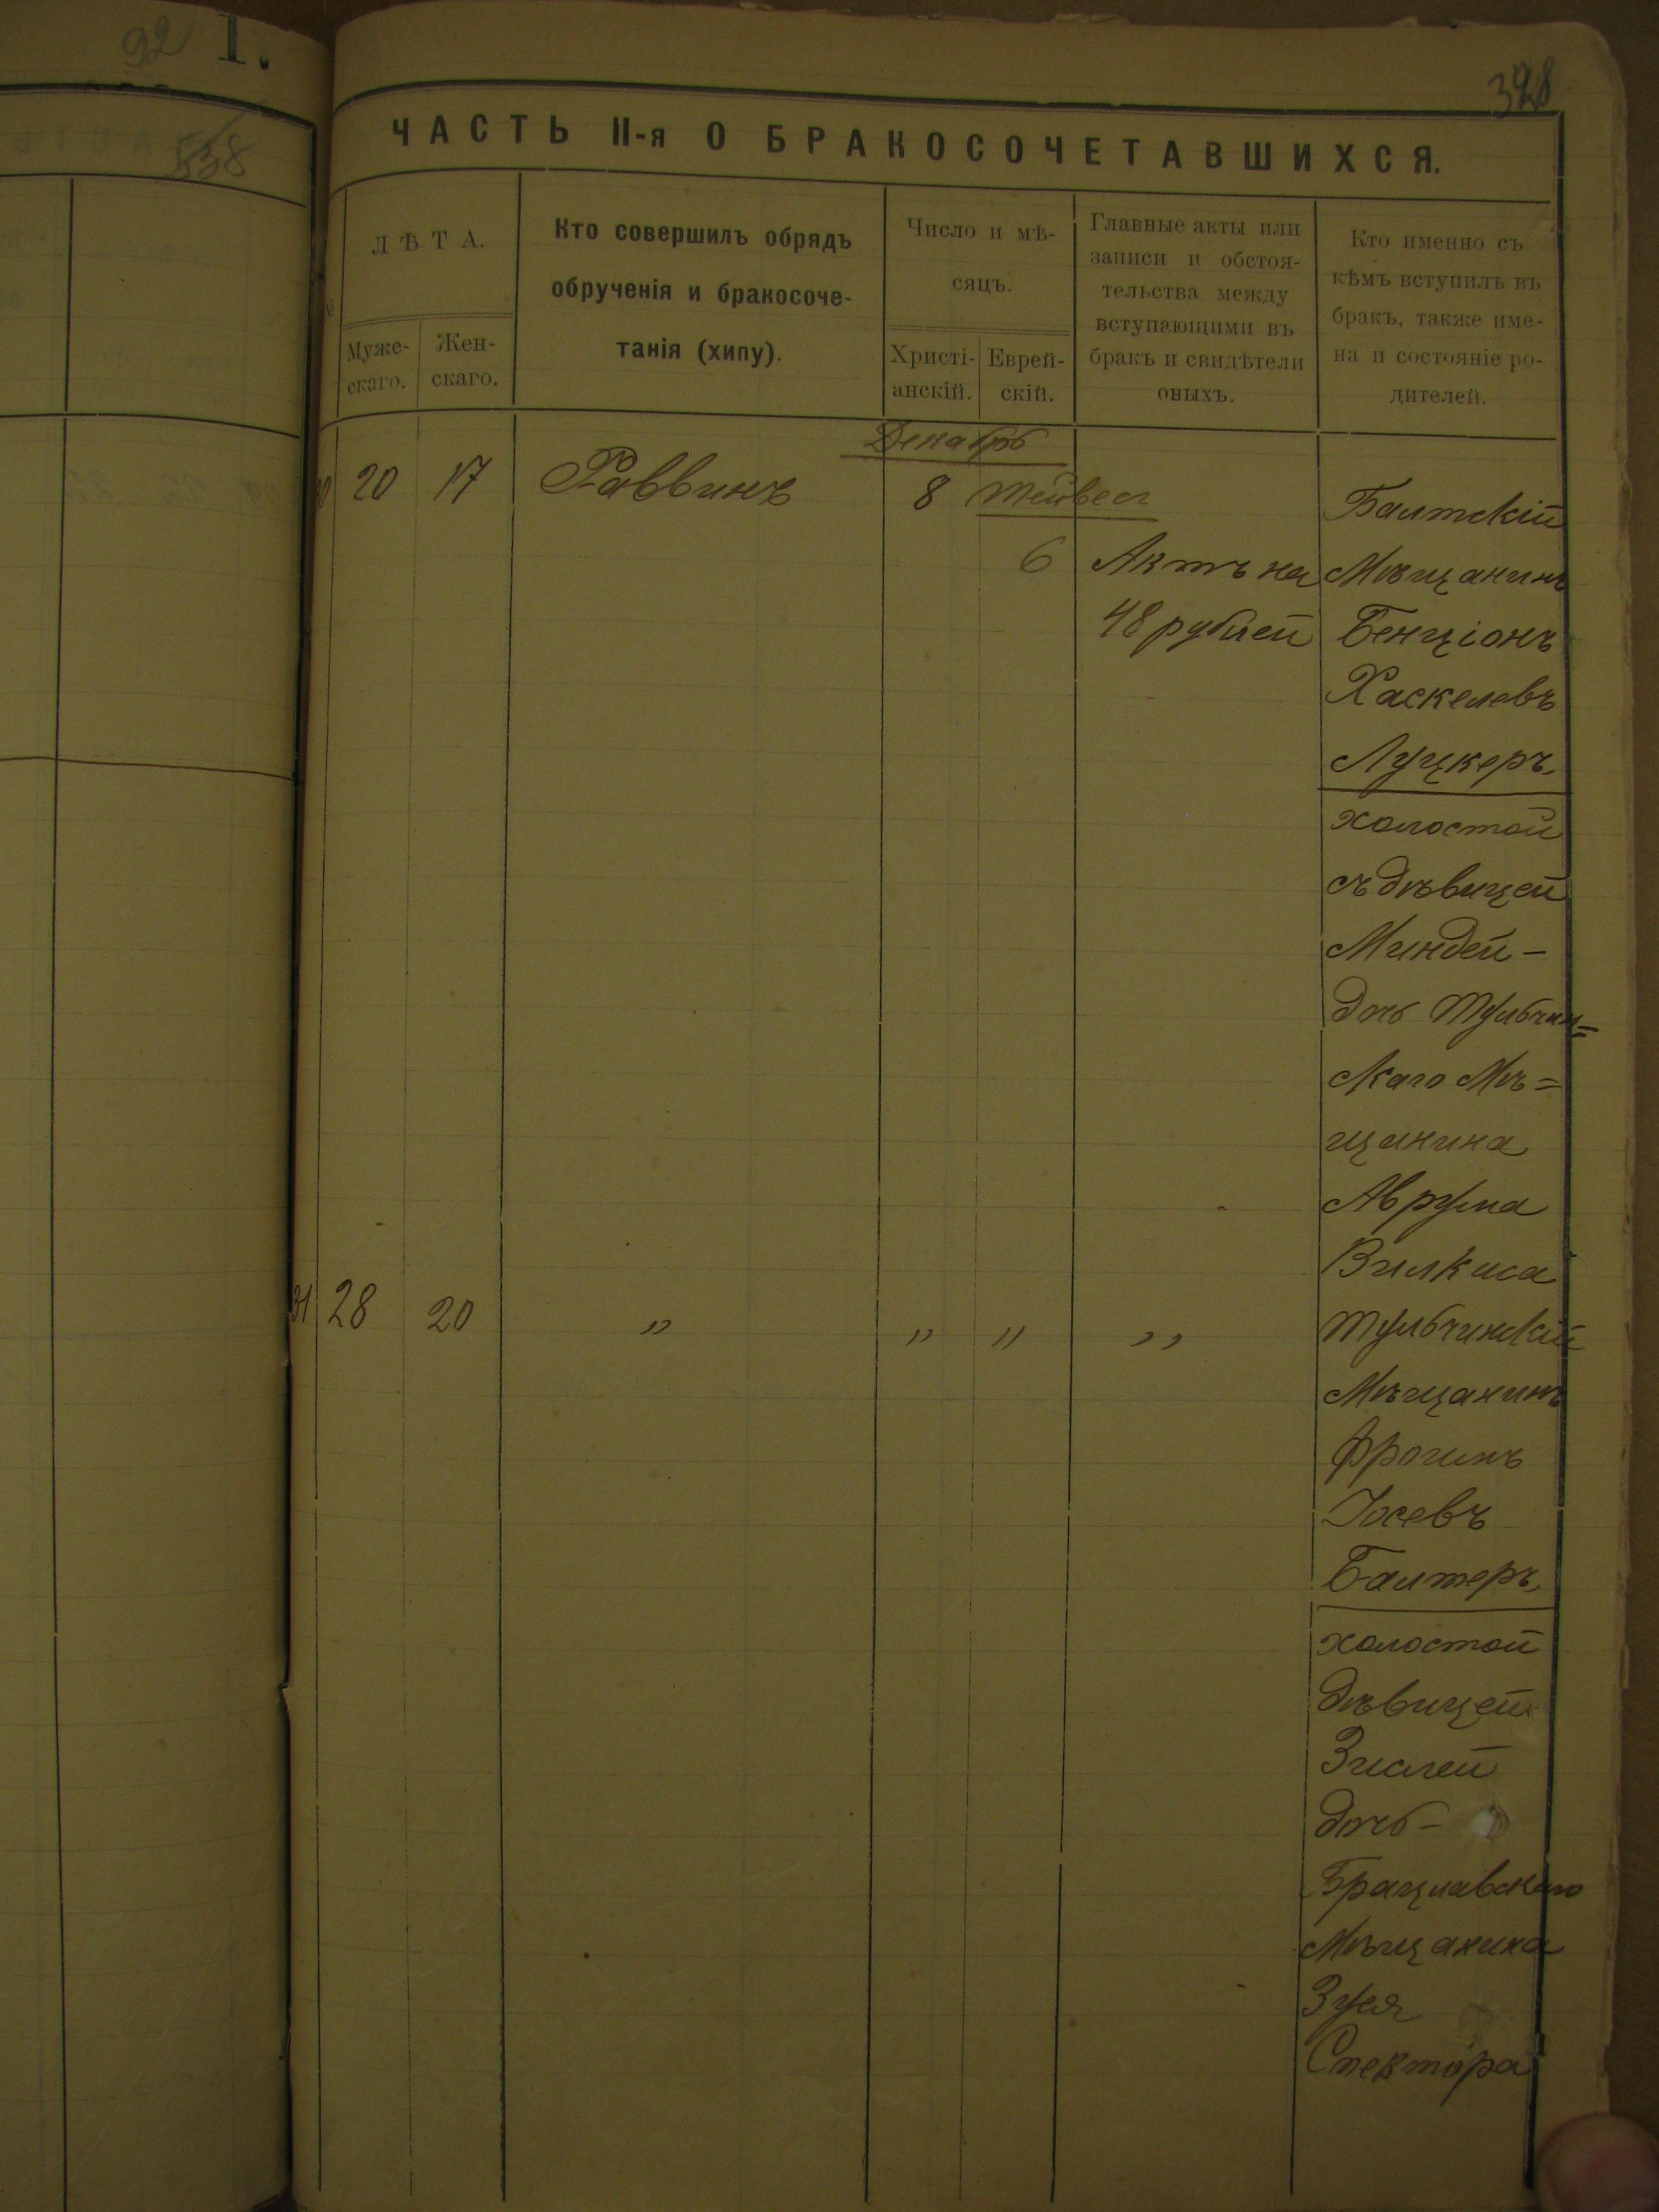 92
1.
538
328
ЧАСТЬ II-я О БРАКОСОЧЕТАВШИХСЯ.
ЛѢТА.
Муже-
скаго.
Жен-
скаго.
Кто совершилъ обрядъ
обрученія и бракосоче-
танія (хипу).
Число и мѣ-
сяцъ.
Христі-
анскій.
Еврей-
скій.
Главные акты или
записи и обстоя-
тельства между
вступающими въ
бракъ и свидѣтели
оныхъ.
Кто именно съ
кѣмъ вступилъ въ
бракъ, также име-
на и состояніе ро-
дителей.
Декабрь
20 17 Раввинъ 8 Тейвес
6
Актъ на
48 рублей
Балтскій
Мѣщанинъ
Бенціонъ
Хаскелевъ
Луцкеръ
холостой
съ дѣвицей
Миндей-
дочь Тульчин=
скаго Мѣ=
щанина
Аврума
Вилкиса
31 28 20 " " " "
Тульчинскій
Мѣщанинъ
Фроимъ
Іосевъ
Балтеръ
холостой
дѣвицей
Зислей
дочь-
Брацлавскаго
Мѣщанина
Зуся
Спектора